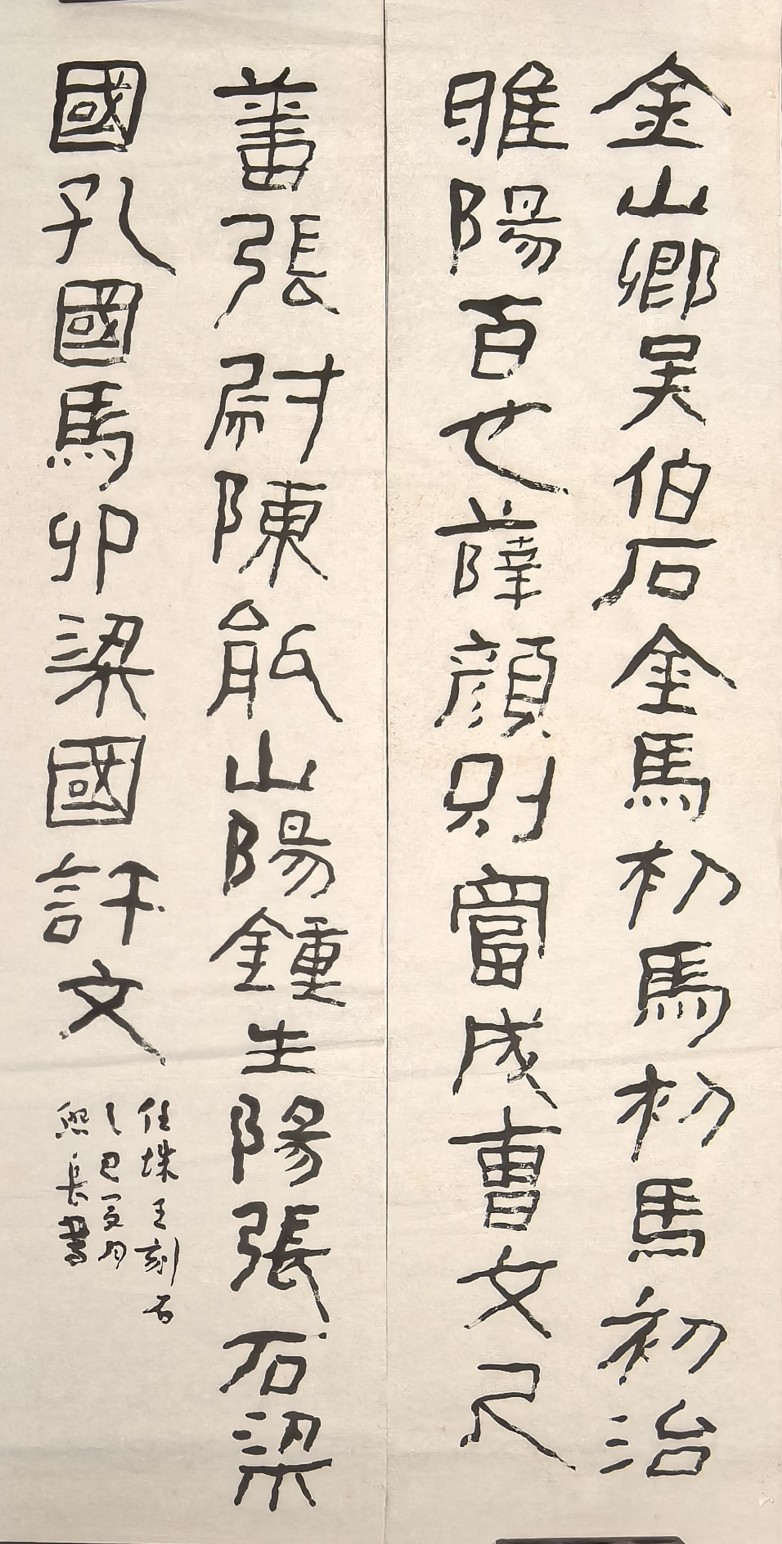 金山鄉吴伯石金馬初馬初馬初治
睢陽百也薛顏則當成曹文尺
蕃張尉陳山陽鍾生陽張石梁
國孔國馬卯梁國許文
任城王刻石
乙巳夏月
熙長書